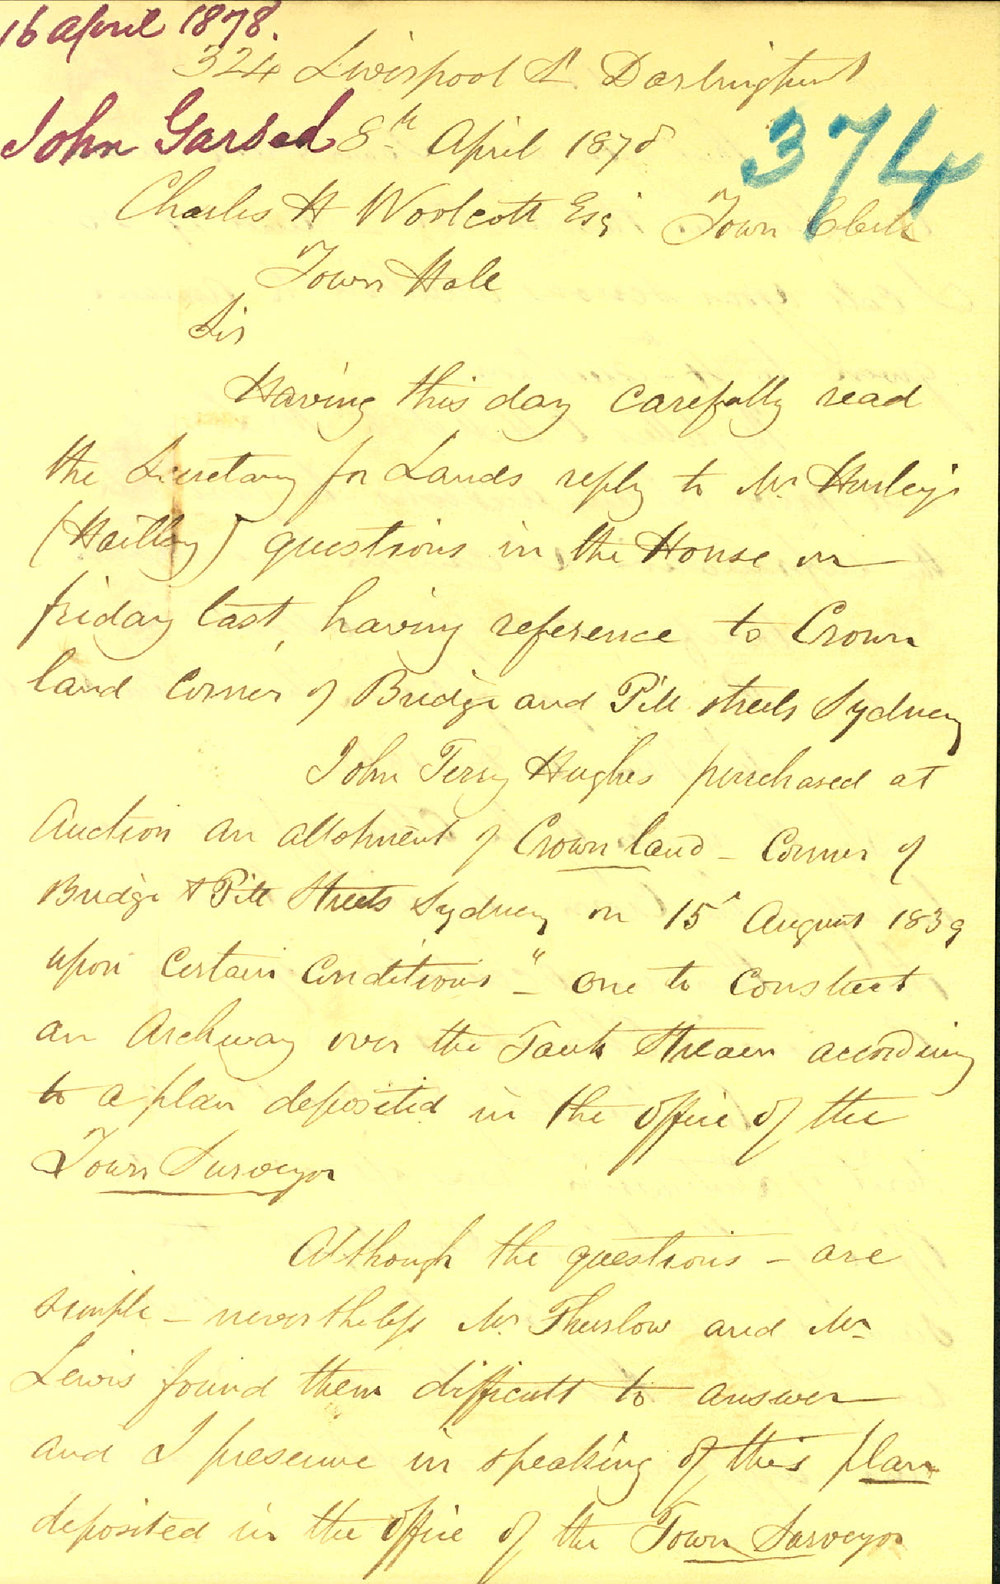 16 april 1878.
324 Liverpool St. Darlinghurst
John Garsed 8th April 1878
374
Charles H Woolcott Esq Town Clerk
Town Hall
Sir
Having this day carefully read
the Secretary for Lands reply to Mr Hurley's
(Hartley) questions in the House on
friday last, having reference to Crown
land corner of Bridge and Pitt streets Sydney
John Terry Hughes purchased at
Auction an allotment of Crown land - Corner of
Bridge & Pitt Streets Sydney on 15th August 1839
upon certain conditions" - one to construct
an Archway over the Tank Stream according
to a plan deposited in the office of the
Town Surveyor
Although the questions - are
simple - nevertheless Mr Thurlow and Mr
Lewis found them difficult to answer
and I presume in speaking of this plan
deposited in the office of the Town Surveyor